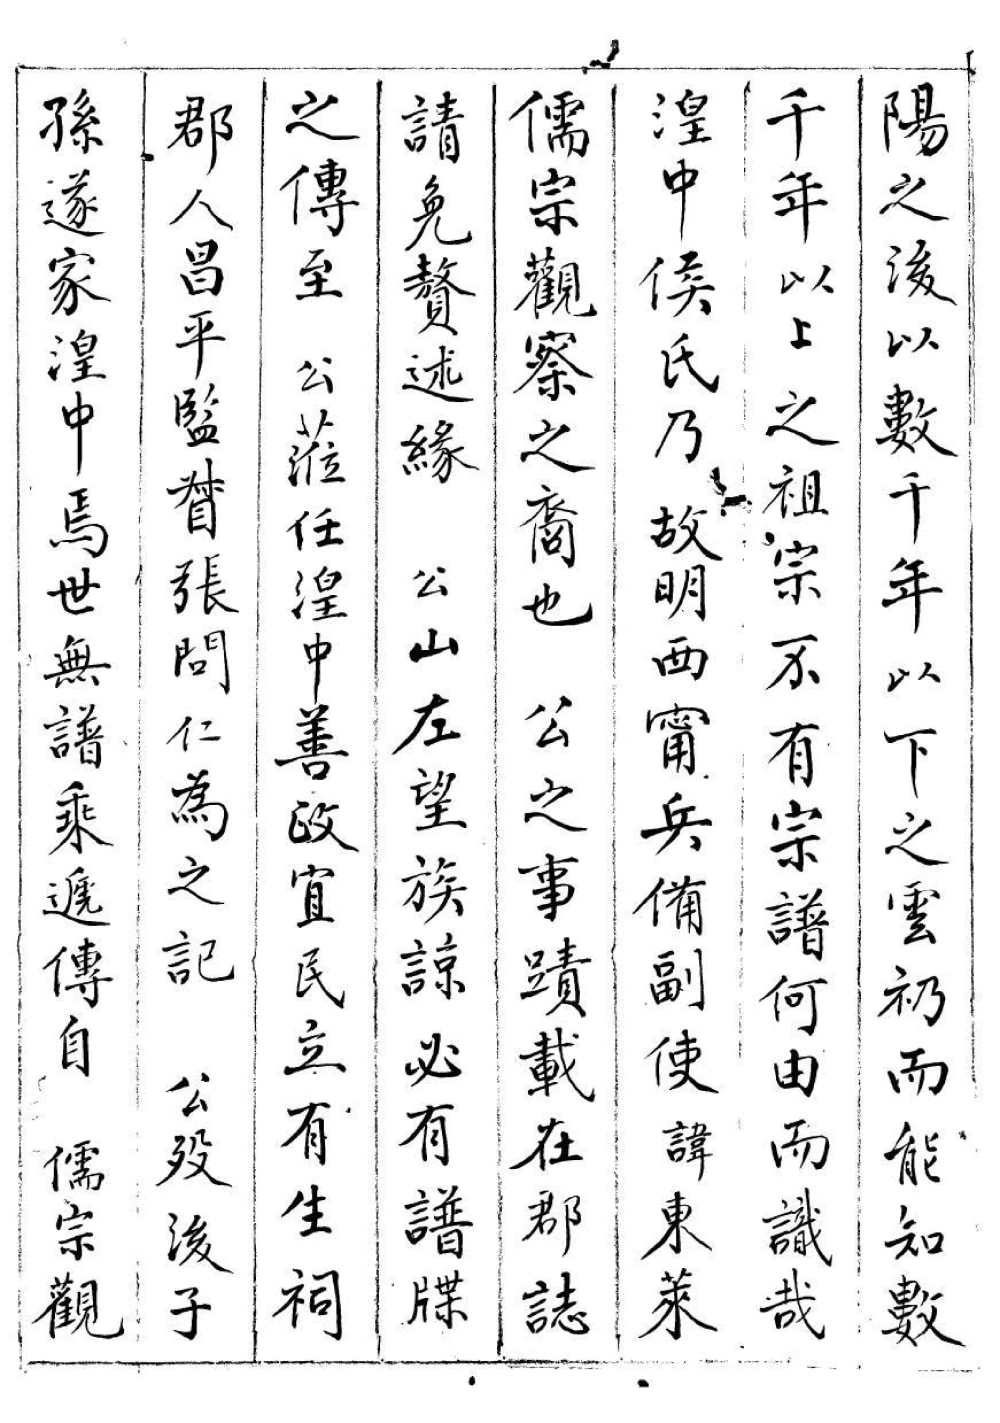 陽之後以數千年以下之雲礽而能知數
千年以上之祖宗不有宗譜何由而識哉
湟中侯氏乃 故明西甯兵備副使諱東萊
儒宗觀察之裔也 公之事蹟載在郡誌
請免贅述緣 公山左望族諒必有譜牒
之傳至 公蒞任湟中善政宜民立有生祠
郡人昌平監督張問仁為之記 公歿後子
孫遂家湟中焉世無譜乘遞傳自 儒宗觀